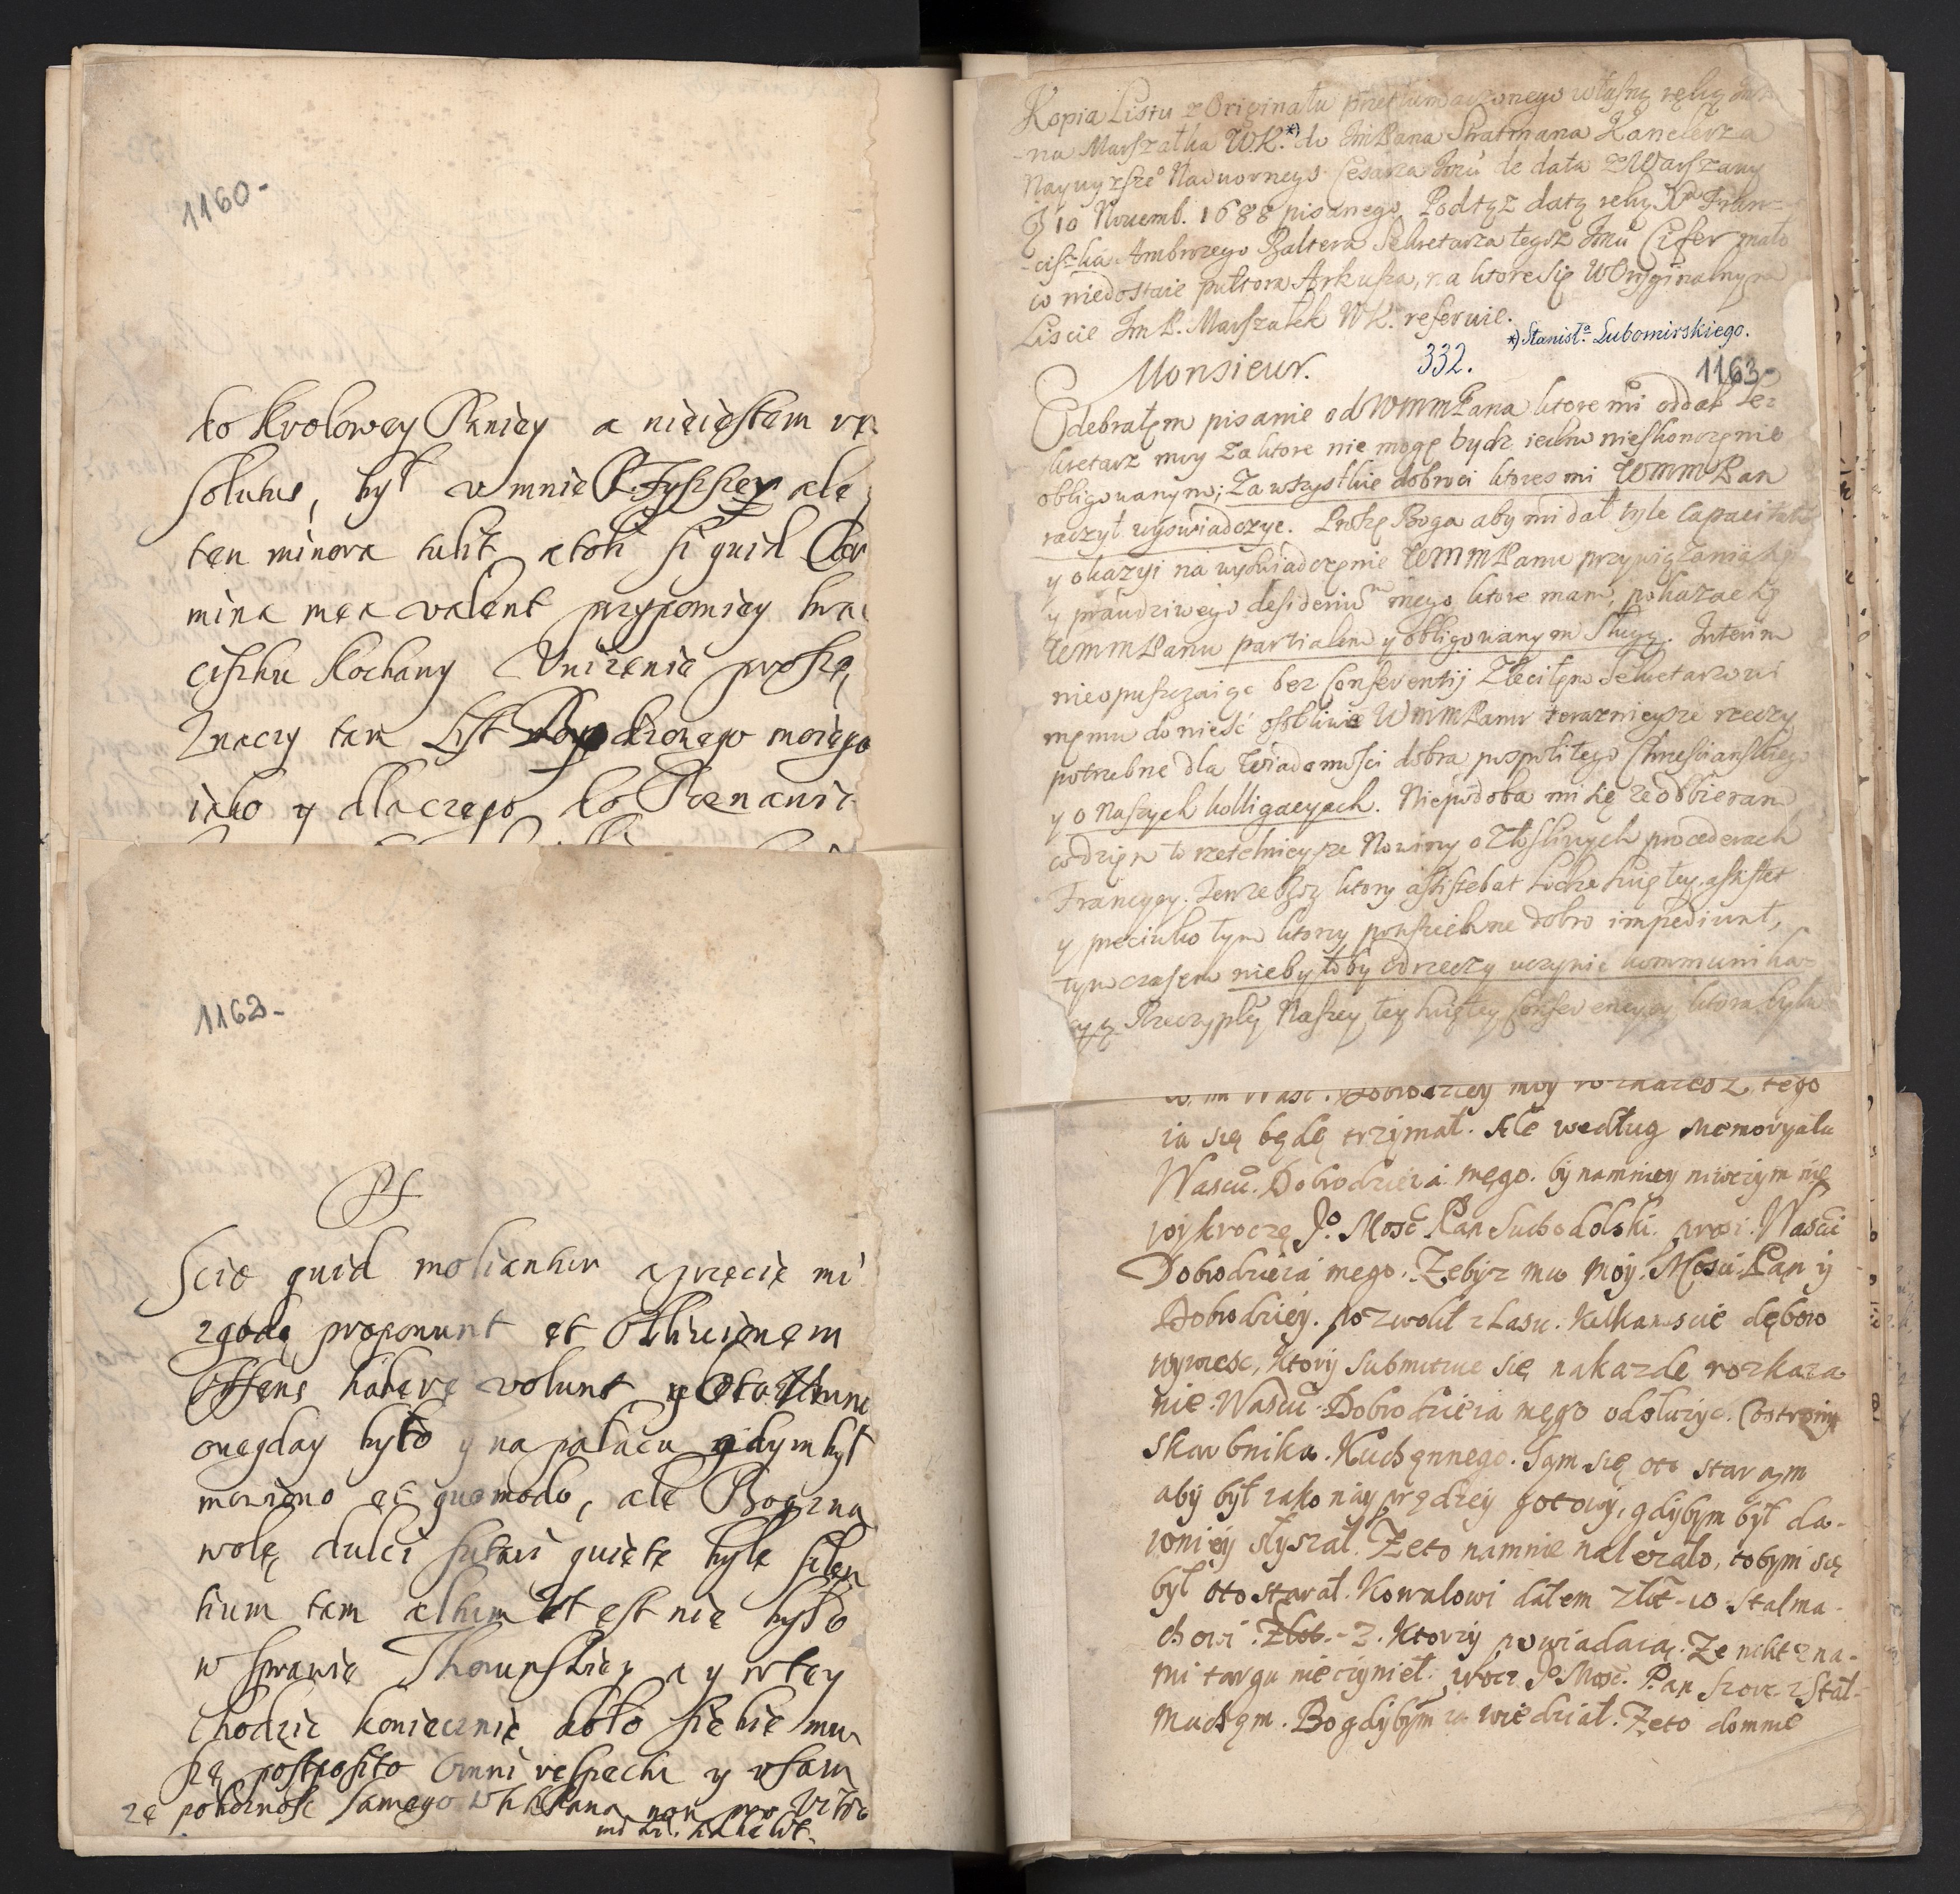 1160-
do Krolowey Pruiey a nieiestem re
solutus, był v mnie P. Fyszhey ale
ten minora tulit atoli si quid Car
mina mea valent przypomiey bra
ciszku kochany Unizenie proszę,
Znaczy ten List
iako y dlaczego do
1163-
PS
Scio quid moliantur a przecię mi
zgodę proponunt et oblivionem
offens habere volunt y
onegday było y na pałacu gdym był
mowiono et quomodo, ale Bog zna
wolę dulci quiete byle silen
tium tam altum Ut est nie było
w sprawie Thorunskiey a y w tey
chodzic koniecznie koło siebie mu
szę postposito omni respectu y ufam
ze samego Pana non pro
Kopia Listu z Originału przetłumaczonego własną ręką Jm P
-na Marszałka W.K.*) do JmPana Stratmana Kanclerza
Naywyższeo Nadwornego Cesarza Jmci de data z Warszawy
10 Novemb. 1688 pisanego. Pod tęz datą ręką Xa Fran-
-ciszka Ambrozego Baltera Sekretarza tegoz Jmci Cifer mało
co niedostaie pułtora Arkusza, na ktore się w Oryginalnym
Liscie Jm P. Marszałek W.K. referuie.
*) Stanisła Lubomirskiego.
Monsieur. 332. 1163-
Odebrałęm pisanie od WMMPana ktore mi oddał Se-
kretarz moy za ktore nie mogę bydz iedno nieskonczęnie
obligowanym; Za wszystkie dobroci ktores mi WMMPan
raczył wyswiadczyc. Proszę Boga aby mi dał tyle capacitatis
y okazyi na wyswiadczęnie WMMPanu przywiązania
y prawdziwego desideriu mego ktore mam, pokazac
WMMPanu partialem y obligowanym sługą. Interim
nieopuszczaiąc bez Conferentij Zleciłęm Sekretarzowi
męmu doniesć osobliwie WMMPanu terazniejsze rzeczy
potrzebne dla wiadomosci dobra pospolitego Chrzescianskiego
y o Naszych kolligacyach. Niepodoba mi się ze odbieram
codzięn to rzetelnieysze Nowiny o złosliwych procederach
Francyey. Ten ze Bog ktory assistebat Lidze swiętey assistet
y przeciwko tym ktorzy powszechne dobro impediunt,
tym czasem niebyłoby odrzeczy uczynic kommunika-
cyą Rzeczyplty Naszey tey swiętey Conferencyey ktora była
Dobrodziey moy rozkazesz, tego
ia się będę trzÿmał. Ale według Memorÿału
Wasci. Dobrodzieia męgo. bÿ namniey niwczÿm nię
wÿkroczę Jo. Mosc Pan Suchodolski. prosi. Wasci
Dobrodzieia mego. Zebÿz mu Moÿ. Mosci. Pan ÿ
Dobrodzieÿ. pozwolił z Lasu. Kilkanscie dębow
wÿwiesc, ktorÿ submituie się nakazde rozkaza
nie. Wasci. Dobrodzieia męgo odsłuzÿc. Costronÿ
skarbnika. Kuchęnnego. Sam się oto staram
abÿ bÿł iako naÿprędzeÿ gotowÿ, gdÿbÿm bÿł da-
wnieÿ słÿszał. Ze to namnie nalezało, tobÿm się
bÿł oto starał. Kowalowi dałem złot - 10. Stalma-
chowi. Złot. - 2. Ktorzÿ powiadaią. Ze nikt zna-
mi targu nie cÿnieł. procz Jo Mosc. Pan Szorc z Stal-
machęm. Bo gdÿbÿm ia wiedział. Ze to domnie